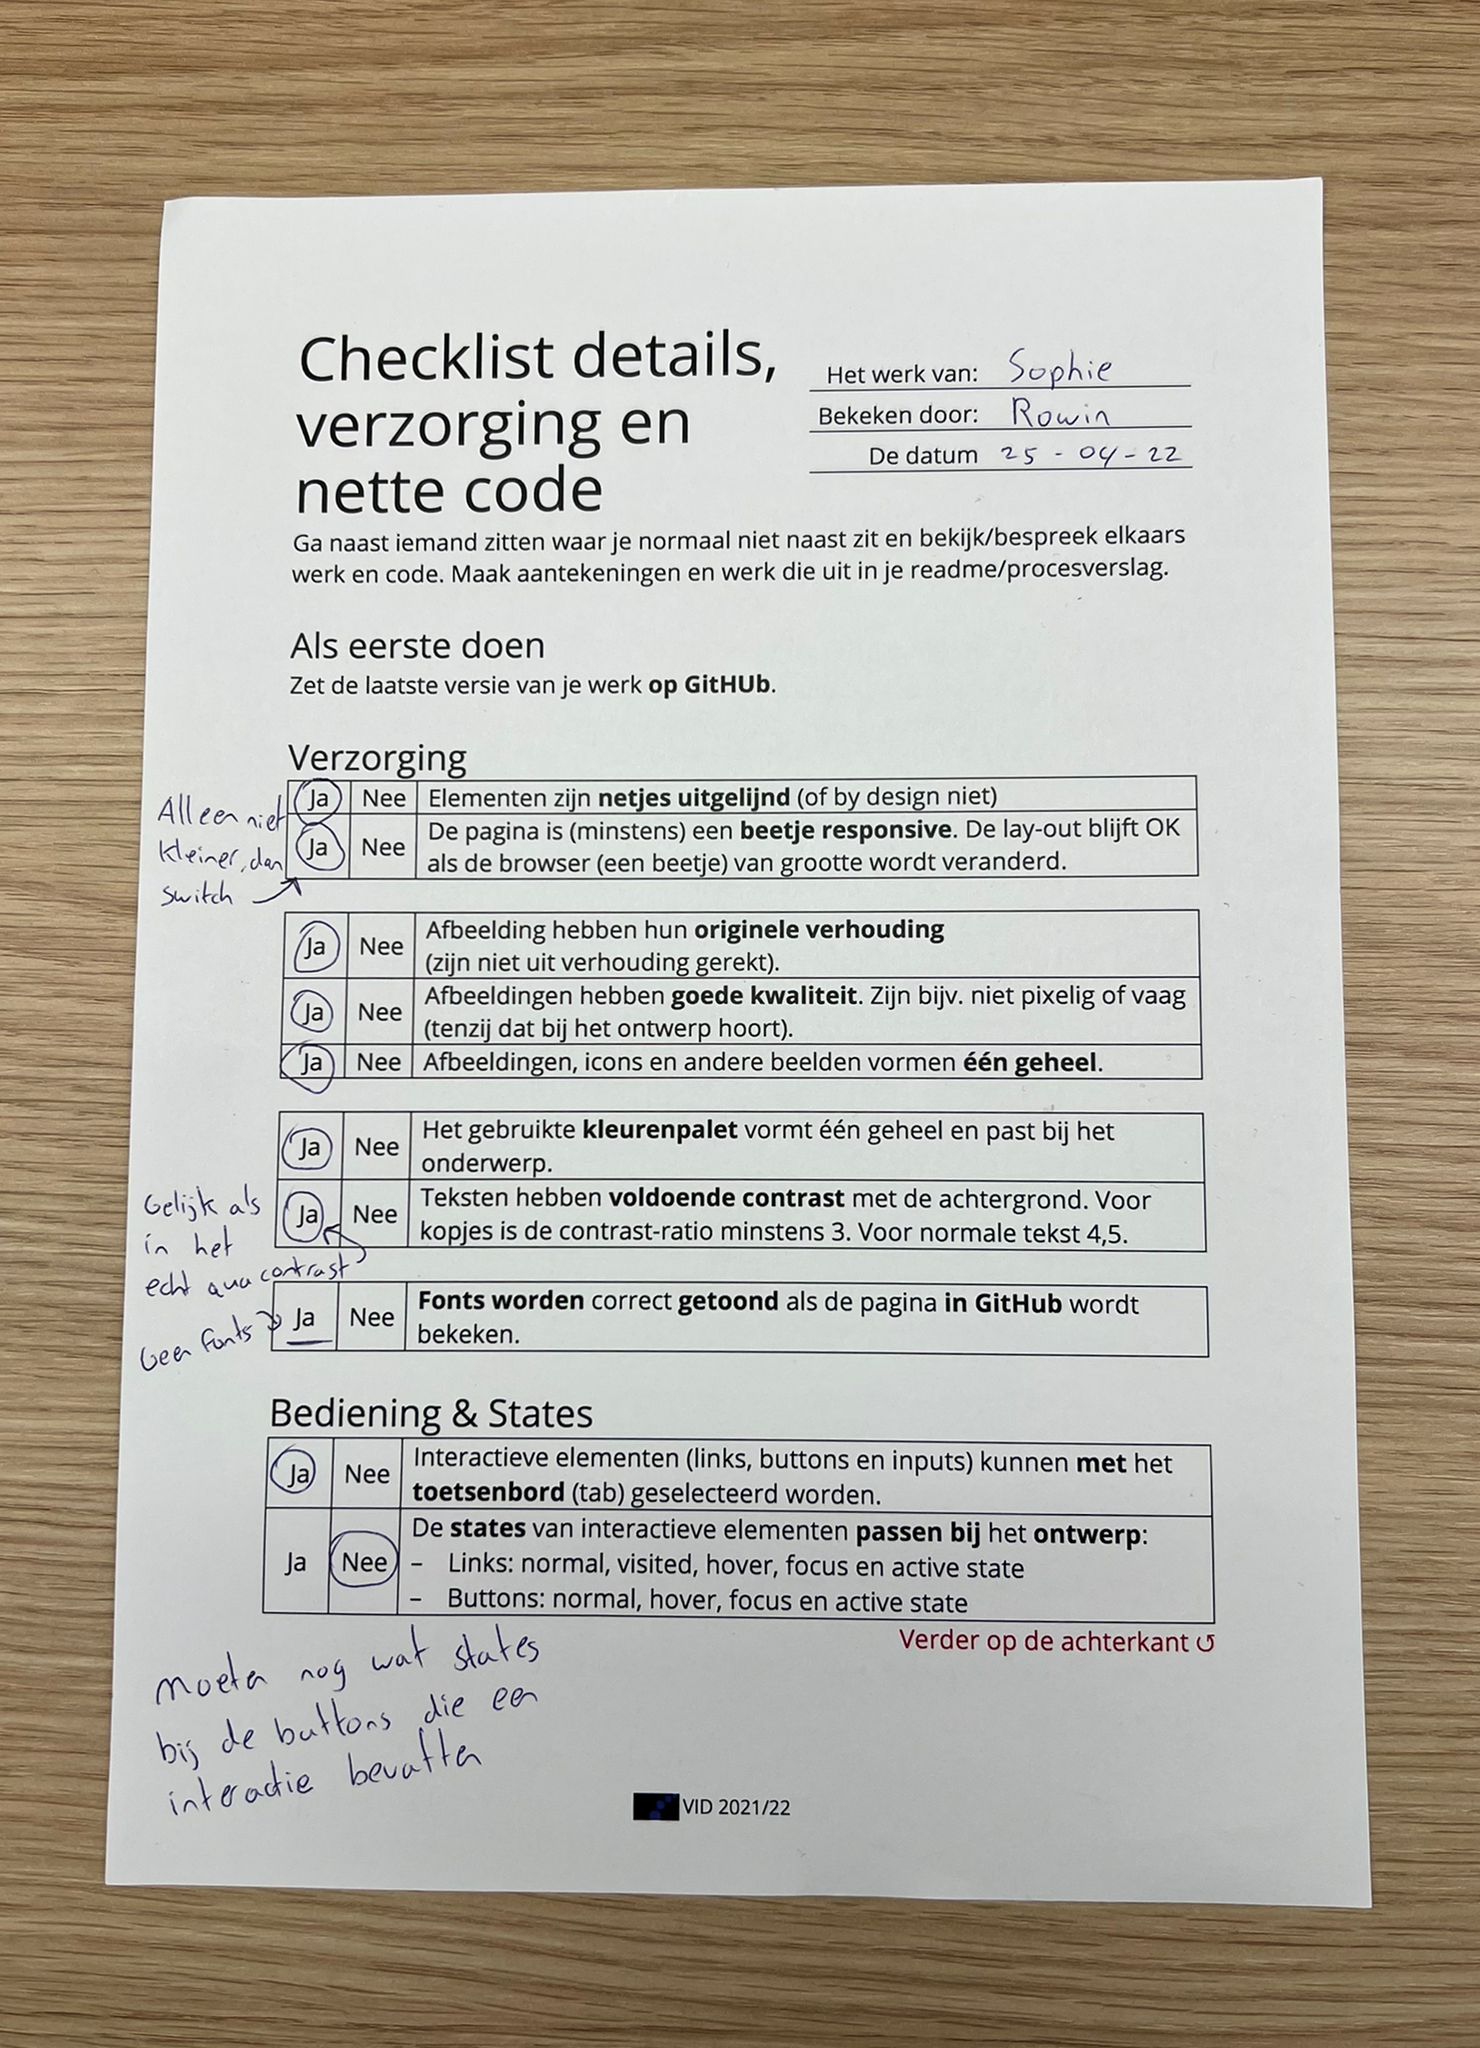 Checklist details,
verzorging en
nette code
Het werk van: Sophie
Bekeken door: Rowin
De datum 25-04-22
Ga naast iemand zitten waar je normaal niet naast zit en bekijk/bespreek elkaars
werk en code. Maak aantekeningen en werk die uit in je readme/procesverslag.
Als eerste doen
Zet de laatste versie van je werk op GitHUb.
Verzorging
Alleen niet
kleiner, dan
switch
Ja Nee Elementen zijn netjes uitgelijnd (of by design niet)
Ja Nee De pagina is (minstens) een beetje responsive. De lay-out blijft OK
als de browser (een beetje) van grootte wordt veranderd.
Ja Nee Afbeelding hebben hun originele verhouding
(zijn niet uit verhouding gerekt).
Ja Nee Afbeeldingen hebben goede kwaliteit. Zijn bijv. niet pixelig of vaag
(tenzij dat bij het ontwerp hoort).
Ja Nee Afbeeldingen, icons en andere beelden vormen één geheel.
Ja Nee Het gebruikte kleurenpalet vormt één geheel en past bij het
onderwerp.
Gelijk als
in het
echt qua contrast
Ja Nee Teksten hebben voldoende contrast met de achtergrond. Voor
kopjes is de contrast-ratio minstens 3. Voor normale tekst 4,5.
Geen fonts
Ja Nee Fonts worden correct getoond als de pagina in GitHub wordt
bekeken.
Bediening & States
Ja Nee Interactieve elementen (links, buttons en inputs) kunnen met het
toetsenbord (tab) geselecteerd worden.
Ja Nee De states van interactieve elementen passen bij het ontwerp:
– Links: normal, visited, hover, focus en active state
– Buttons: normal, hover, focus en active state
Verder op de achterkant ↺
Moeten nog wat states
bij de buttons die een
interactie bevatten
VID 2021/22